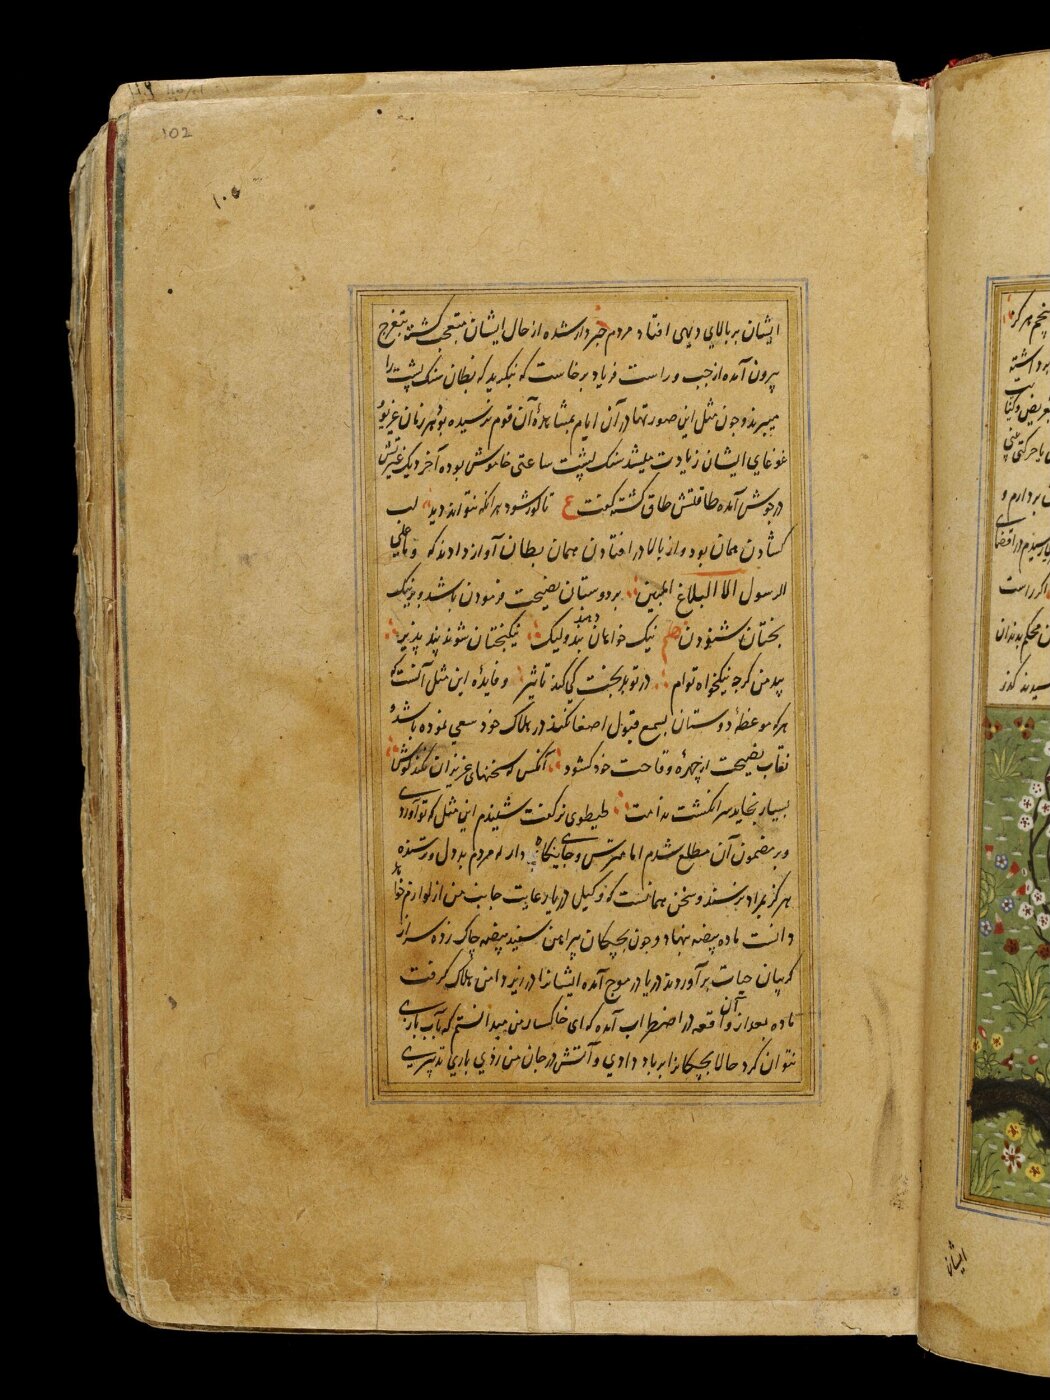 102
۱۰۵
ایشان بر بالای دیهی افتاد مردم خبردار شده از حال ایشان متعجب گشته بتفرج
بیرون آمده از چپ و راست فریاد برخاست که بنگرید که بطان سنک پشت را
میبرند و چون مثل این صورتها در آن ایام بمشاهدهٔ آن قوم نرسیده بود هر زمان غریو و
غوغای ایشان زیادت میشد سنک پشت ساعتی خاموش بوده آخر دیک غیرتش
در جوش آمده طاقتش طاق گشته گفت ع تا کور شود هر آنکه نتواند دید لب
گشادن همان بود و از بالا در افتادن همان بطان آواز دادند که و ما علی
الرسول الا البلاغ المبین بر دوستان نصیحت فرمودن باشد و بر نیک
بختان شنودن نیک خواهان دهند پند ولیک نیکبختان شوند پند پذیر
پند من کرچه نیکخواه توام در تو بدبخت کی کند تاثیر و فایدهٔ این مثل آنست که
هر که موعظهٔ دوستان بسمع قبول اصغا نکند در هلاک خود سعی نموده باشد و
نقاب نصیحت از چهرهٔ وقاحت خود کشود آنکس که سخنهای عزیزان نکند گوش
بسیار بخاید سر انگشت ندامت طیطوی نر گفت شنیدم این مثل که تو آوردی
و بر مضمون آن مطلع شدم اما مترس و جای نگاه دار که مردم بددل و ترسنده
هرگز بمراد نرسند و سخن همانست که وکیل دریا رعایت جانب من از لوازم خواهد
دانست ماده بیضه بنهاد و چون بچپکان پیراهن سفید بیضه چاک زده سر از
گریبان حیات برآوردند دریا در موج آمده ایشانرا در زیر دامن هلاک گرفت
ماده بعد از آن واقعه در اضطراب آمده که ای خاکسار من میدانستم که با آب بازی
نتوان کرد حالا بچکانرا بر باد دادی و آتش در جان من زدی باری تدبیری
ایشان